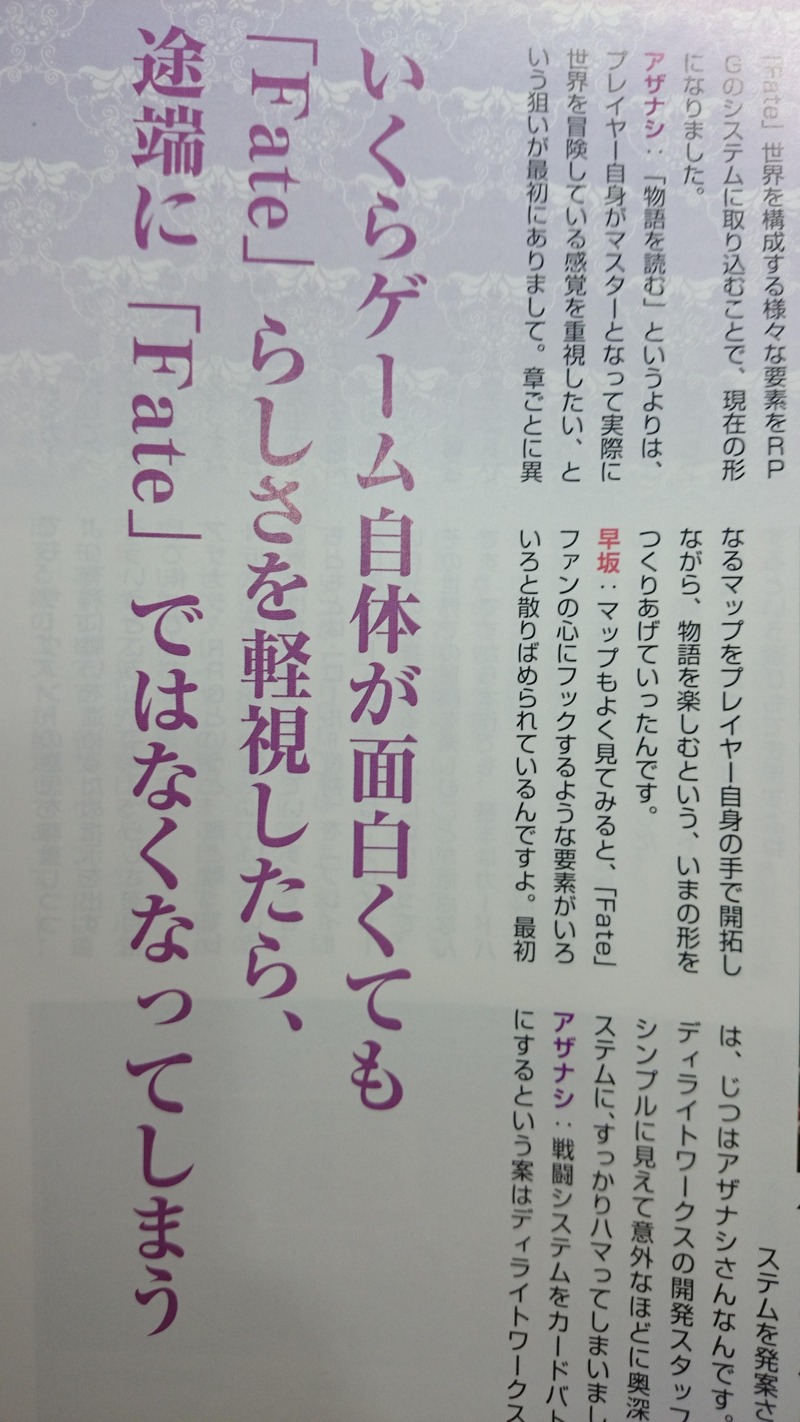 「Fate」世界を構成する様々な要素をRP
Gのシステムに取り込むことで、現在の形
になりました。
アザナシ：「物語を読む」というよりは、
プレイヤー自身がマスターとなって実際に
世界を冒険している感覚を重視したい、と
いう狙いが最初にありまして。章ごとに異
なるマップをプレイヤー自身の手で開拓し
ながら、物語を楽しむという、いまの形を
つくりあげていったんです。
早坂：マップもよく見てみると、「Fate」
ファンの心にフックするような要素がいろ
いろと散りばめられているんですよ。最初
ステムを発案さ
は、じつはアザナシさんなんです。
ディライトワークスの開発スタッフ
シンプルに見えて意外なほどに奥深
ステムに、すっかりハマってしまいまし
アザナシ：戦闘システムをカードバト
にするという案はディライトワークス
いくらゲーム自体が面白くても
「Fate」らしさを軽視したら、
途端に「Fate」ではなくなってしまう